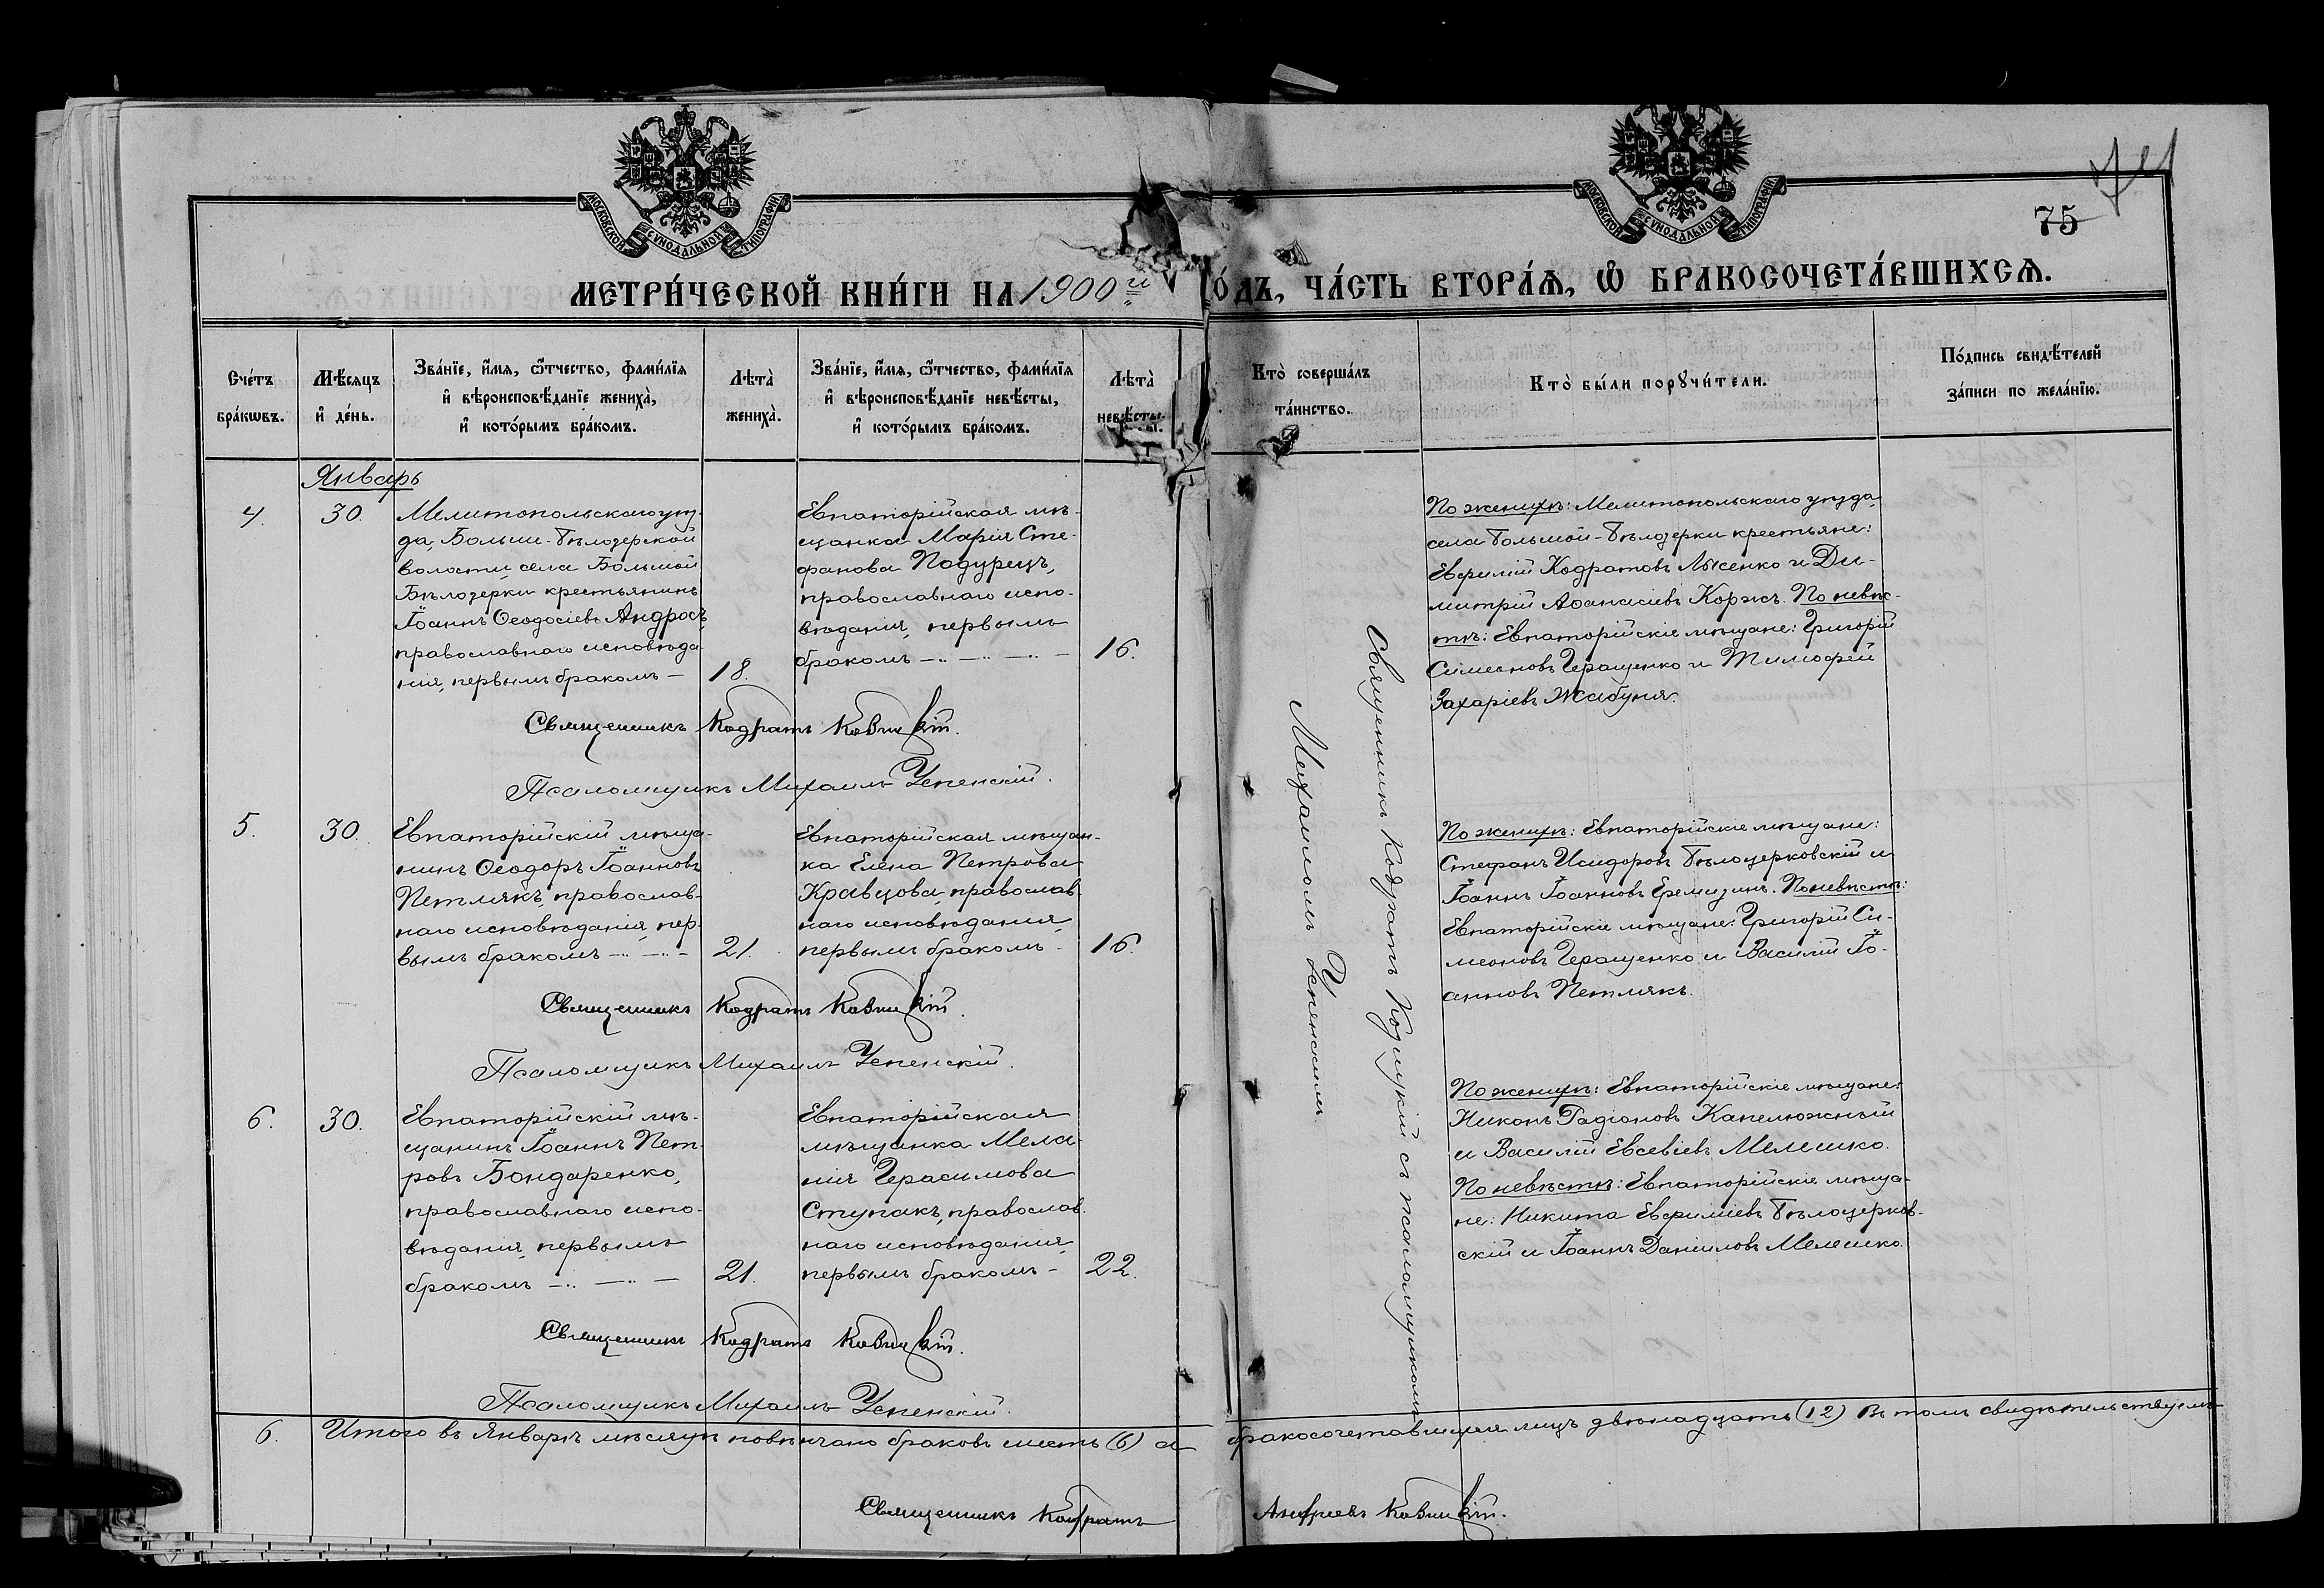 МОСКОВСКОЙ СѴНОДАЛЬНОЙ ТИПОГРАФІИ
МОСКОВСКОЙ СѴНОДАЛЬНОЙ ТИПОГРАФІИ
75
МЕТРИ́ЧЕСКОЙ КНИ́ГИ НА 1900й
О́ДЪ, ЧА́СТЬ ВТОРА́Ѧ, Ѡ҆ БРАКОСОЧЕТА́ВШИХСѦ.
Сче́тъ бра́кѡвъ.
Мѣ́сяцъ и҆ де́нь.
Зва́нїе, и҆́мѧ, ѻ҆́тчество, фами́лїѧ и҆ вѣроисповѣ́данїе жениха̀, и҆ кото́рымъ бра́комъ.
Лѣта̀ жениха̀.
Зва́нїе, и҆́мѧ, ѻ҆́тчество, фами́лїѧ и҆ вѣроисповѣ́данїе невѣ́сты, и҆ кото́рымъ бра́комъ.
Лѣта̀ невѣ́сты.
Кто̀ соверша́лъ та́инство.
Кто̀ бы́ли порꙋчи́тели.
По́дпись свидѣ́телей за́писи по жела́нїю.
Январь
4.
30.
Мелитопольскаго уѣз-
да, Больше-Бѣлозерской
волости, села Большой
Бѣлозерки крестьянинъ
Іоаннъ Ѳеодосіевъ Андросъ,
православнаго исповѣда
нія, первымъ бракомъ —
18.
Евпаторійская мѣ-
щанка Марія Сте-
фанова Подурецъ,
православнаго испо-
вѣданія, первымъ
бракомъ
16.
Священникъ Кодратъ
Псаломщикъ Михаилъ Успенскій.
По женихѣ: Мелитопольскаго уѣзда,
села Большой-Бѣлозерки крестьяне:
Евфимій Кодратовъ Лысенко и Ди-
митрій Аѳанасіевъ Коржъ. По невѣс-
тѣ: Евпаторійскіе мѣщане: Григорій
Симеоновъ Геращенко и Тимофей
Захаріевъ Жабуня.
5.
30.
Евпаторійскій мѣща-
нинъ Ѳеодоръ Іоанновъ
Петлякъ, православ-
наго исповѣданія, пер-
вымъ бракомъ
21.
Евпаторійская мѣщан-
ка Елена Петрова
Кравцова, православ-
наго исповѣданія,
первымъ бракомъ -
16.
Священникъ Кодратъ
Псаломщикъ Михаилъ Успенскій.
По женихѣ: Евпаторійскіе мѣщане:
Стефанъ Исидоровъ Бѣлоцерковскій и
Іоаннъ Іоанновъ Еремизинъ. По невѣстѣ:
Евпаторійскіе мѣщане: Григорій Си-
меоновъ Геращенко и Василій Іо-
анновъ Петлякъ.
6.
30.
Евпаторійскій мѣ-
щанинъ Іоаннъ Пет-
ровъ Бондаренко,
православнаго испо-
вѣданія, первымъ
бракомъ
21.
Евпаторійская
мѣщанка Мела-
нія Герасимова
Ступакъ, православ-
наго исповѣданія,
первымъ бракомъ -
22.
Священникъ Кодратъ
Псаломщикъ Михаилъ Успенскій.
По женихѣ: Евпаторійскіе мѣщане:
Никонъ Радіоновъ Капелюжный
и Василій Евсевіевъ Мелешко.
По невѣстѣ: Евпаторійскіе мѣща-
не: Никита Евфиміевъ Бѣлоцерков-
скій и Іоаннъ Даніиловъ Мелешко.
Священникъ Кодратъ съ псаломщикомъ
Михаиломъ Успенскимъ
6. Итого въ Январѣ мѣсяцѣ повѣнчано браковъ шесть (6) а бракосочетавшихся лицъ двѣнадцать (12) Въ томъ свидѣтельствуемъ
Священникъ Кодратъ Андреевъ